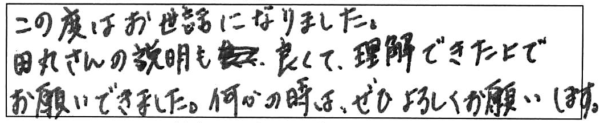 この度はお世話になりました。
田丸さんの説明も良くて、理解できた上で
お願いできました。何かの時は、ぜひよろしくお願いします。